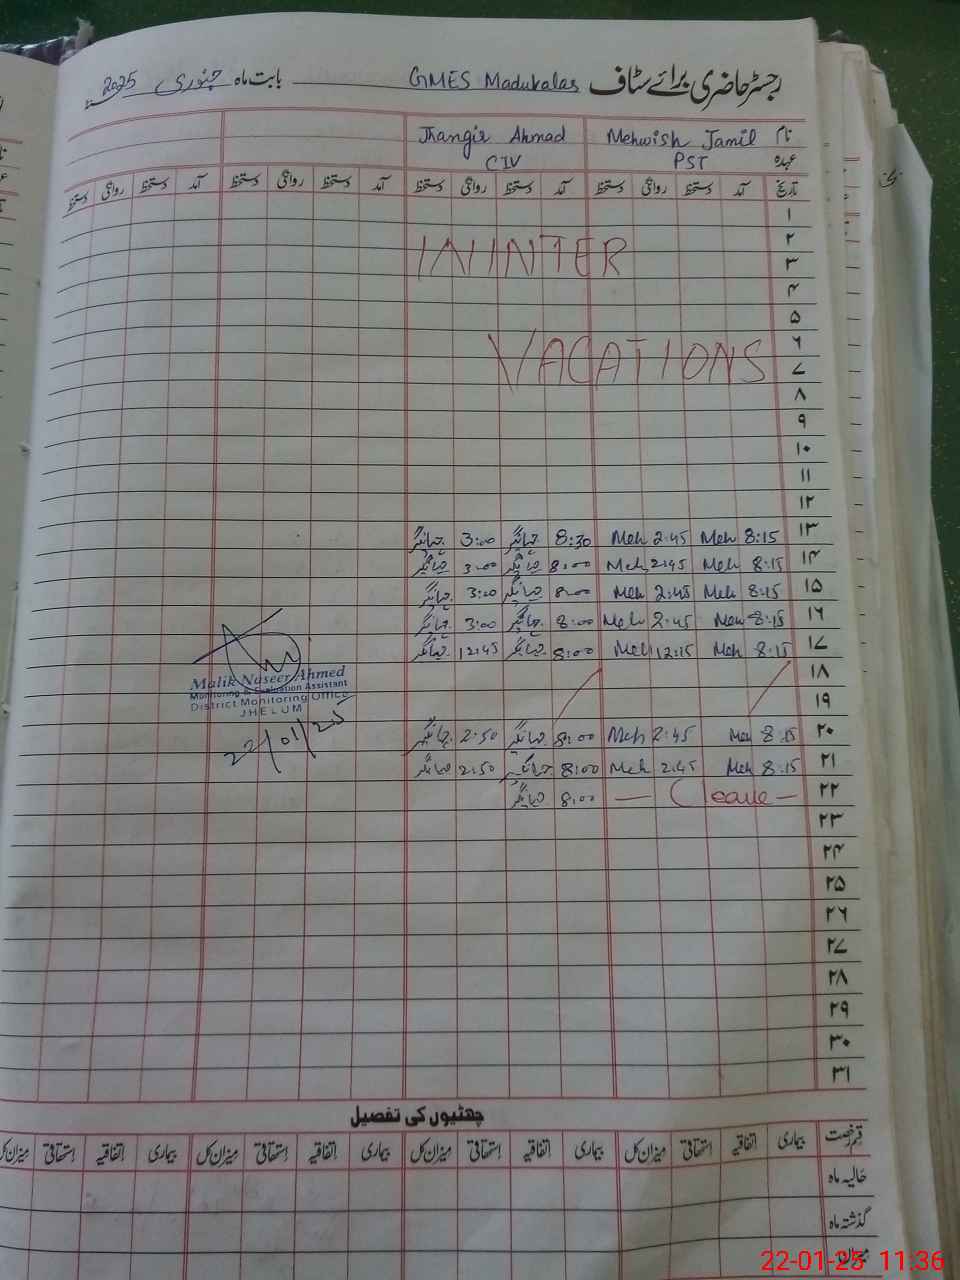 رجسٹر حاضری برائے سٹاف GMES Madukalas بابت ماہ جنوری 2025
نام Mehwish Jamil Jhangir Ahmad
عہدہ PST CIV
تاریخ آمد دستخط روانگی دستخط آمد دستخط روانگی دستخط آمد دستخط روانگی دستخط آمد دستخط روانگی دستخط
۱
۲
WINTER
۳
۴
۵
۶
VACATIONS
۷
۸
۹
۱۰
۱۱
۱۲
۱۳ 8:15 Meh 2:45 Meh 8:30 جہانگیر 3:00 جہانگیر
۱۴ 8:15 Meh 2:45 Meh 8:00 جہانگیر 3:00 جہانگیر
۱۵ 8:15 Meh 2:45 Meh 8:00 جہانگیر 3:00 جہانگیر
۱۶ 8:15 Meh 2:45 Meh 8:00 جہانگیر 3:00 جہانگیر
۱۷ 8:15 Meh 12:15 Meh 8:00 جہانگیر 12:45 جہانگیر
۱۸
۱۹
۲۰ 8:15 Meh 2:45 Meh 8:00 جہانگیر 2:50 جہانگیر
۲۱ 8:15 Meh 2:45 Meh 8:00 جہانگیر 2:50 جہانگیر
۲۲ — C leave — 8:00 جہانگیر
Malik Naseer Ahmed
Monitoring & Evaluation Assistant
District Monitoring Office
JHELUM
22/01/25
۲۳
۲۴
۲۵
۲۶
۲۷
۲۸
۲۹
۳۰
۳۱
چھٹیوں کی تفصیل
قسم رخصت بیماری اتفاقیہ استحقاقی میزان کل بیماری اتفاقیہ استحقاقی میزان کل بیماری اتفاقیہ استحقاقی میزان کل بیماری اتفاقیہ استحقاقی میزان کل
حالیہ ماہ
گذشتہ ماہ
میزان
22-01-25 11:36